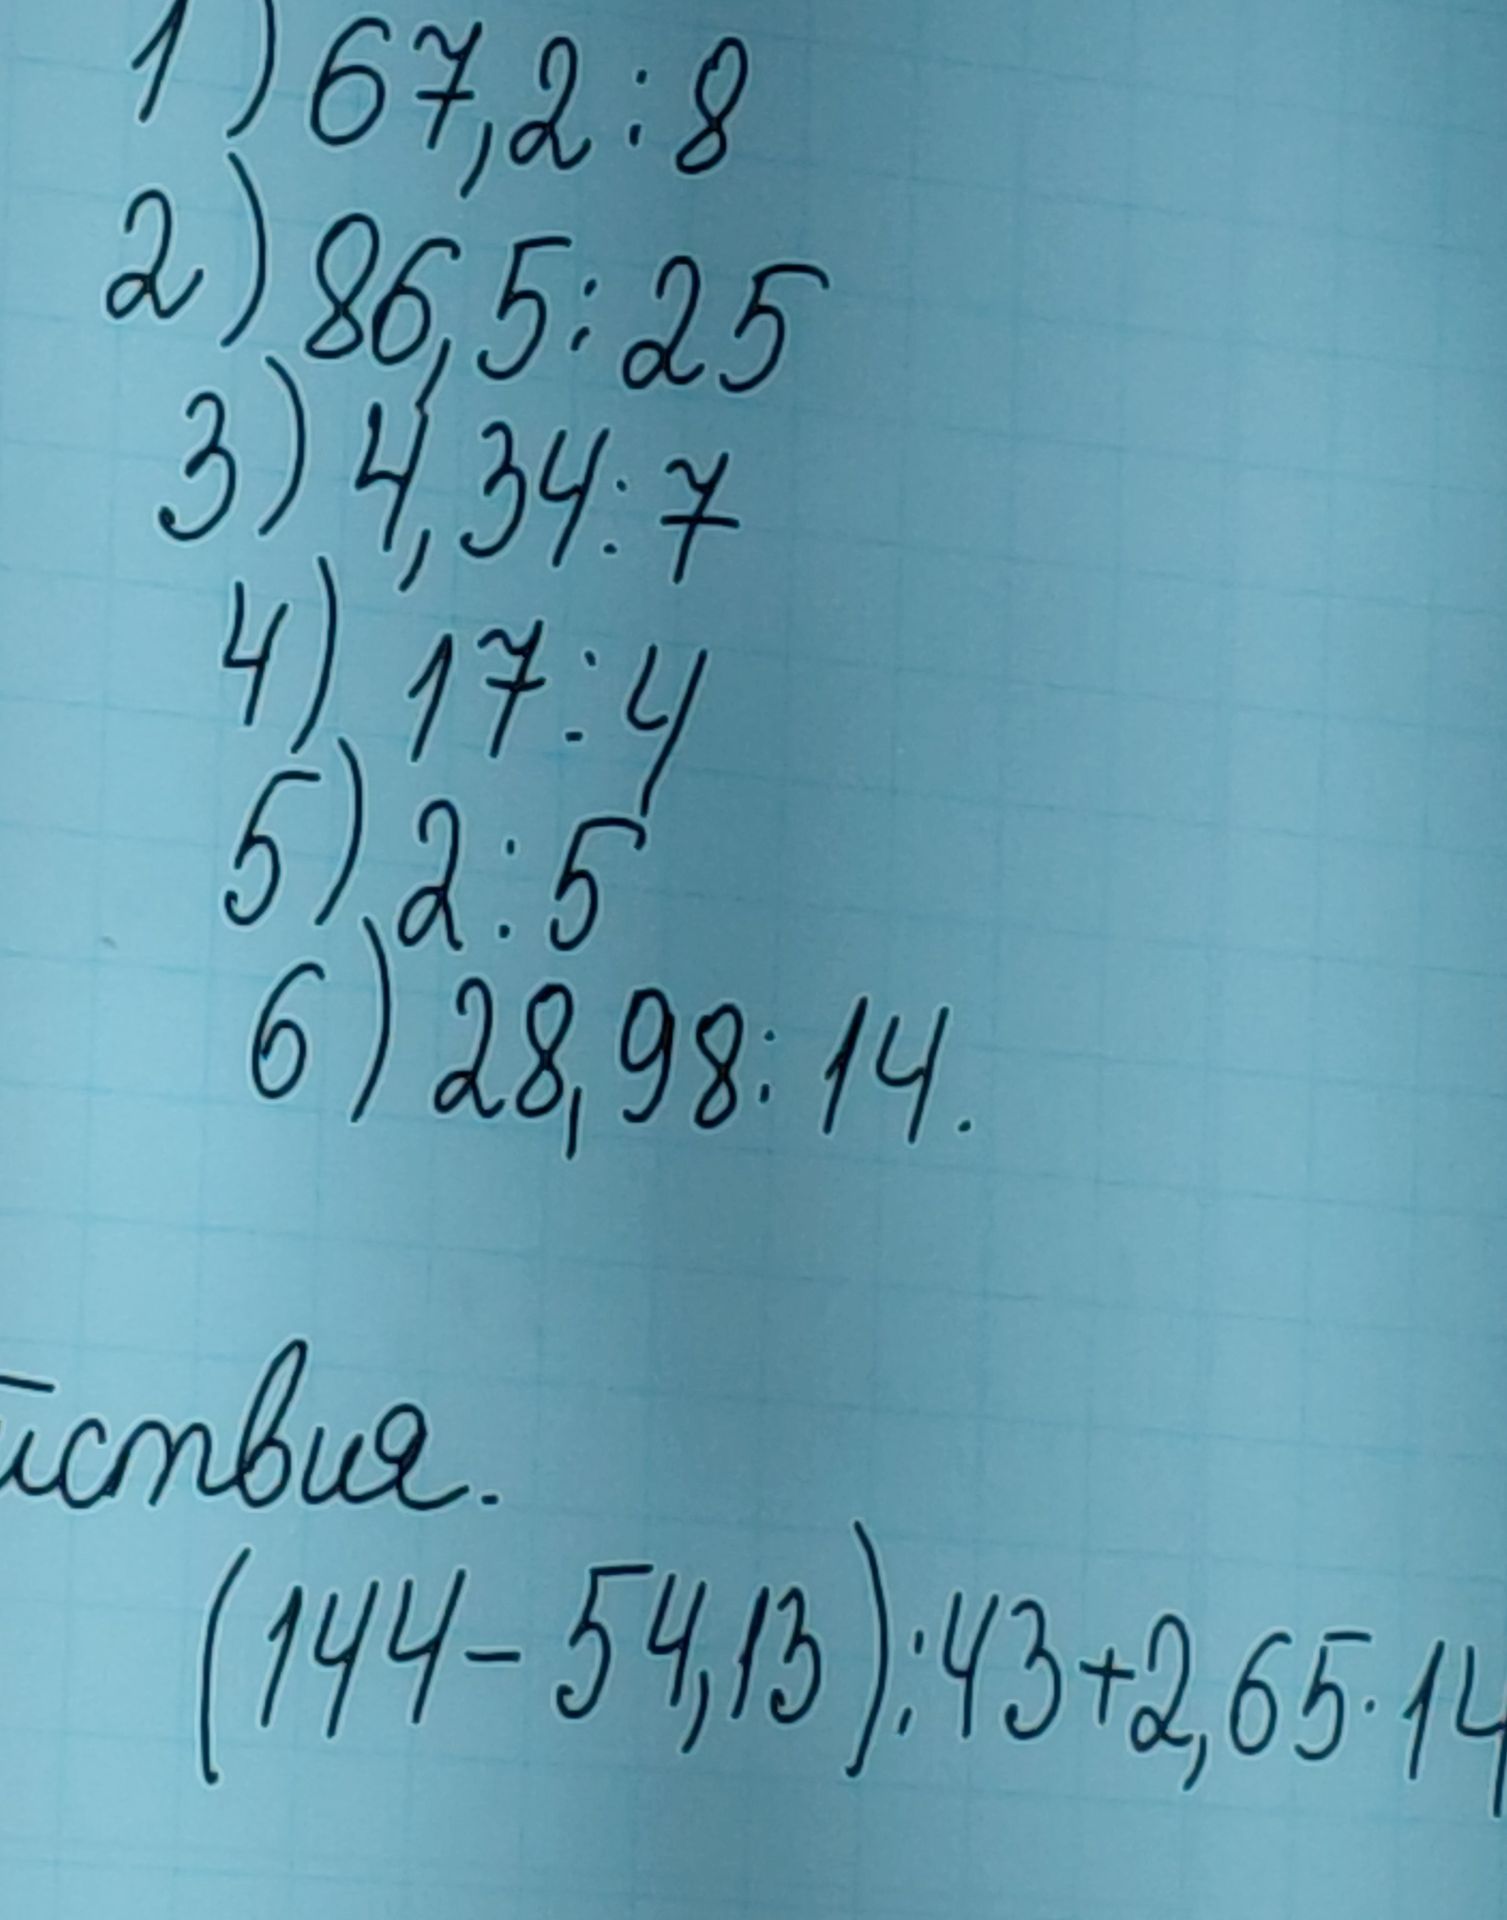 1) 67,2 : 8
2) 86,5 : 25
3) 4,34 : 7
4) 17 : 4
5) 2 : 5
6) 28,98 : 14.
йствия.
(144 - 54,13) : 43 + 2,65 · 14